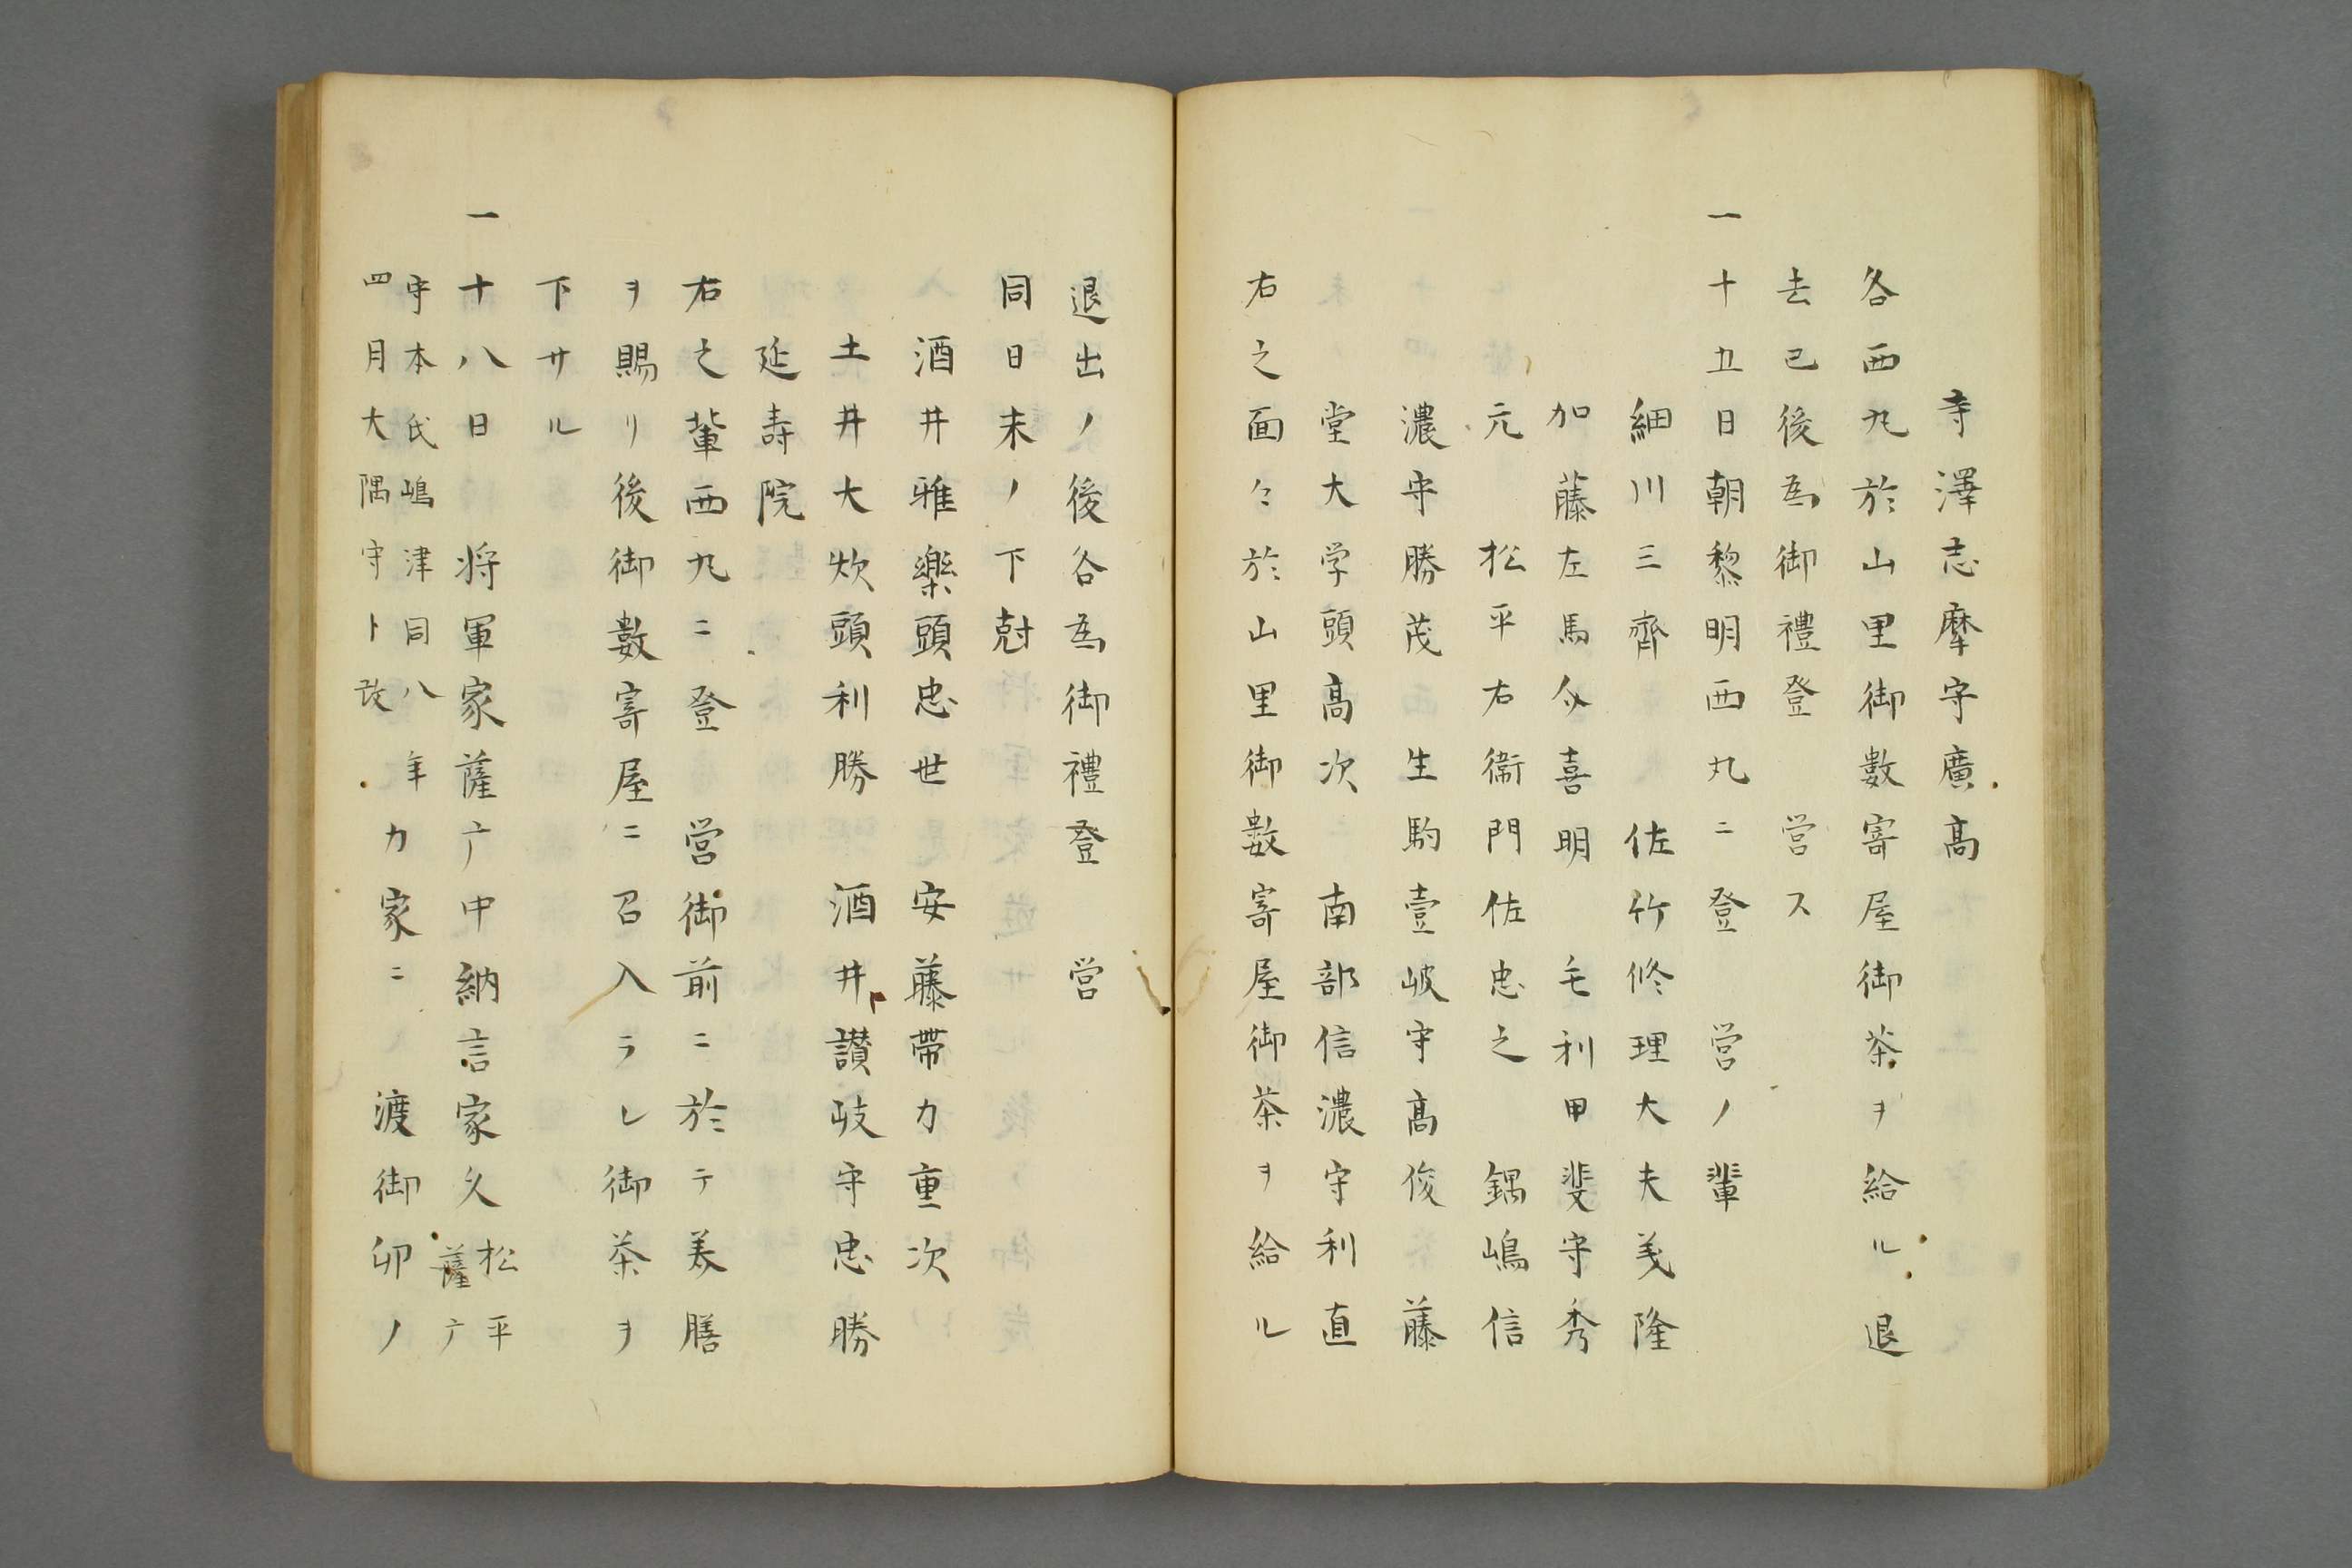 寺澤志摩守廣高
各西丸於山里御數寄屋御茶ヲ給ル退
去已後為御禮登　営ス
一十五日朝黎明西丸ニ登　営ノ輩
細川三齊　佐竹修理大夫義隆
加藤左馬介喜明　毛利甲斐守秀
元　松平右衞門佐忠之　鍋嶋信
濃守勝茂　生駒壹岐守高俊　藤
堂大学頭高次　南部信濃守利直
右之面々於山里御數寄屋御茶ヲ給ル
退出ノ後各為御禮登　営
同日未ノ下尅
酒井雅樂頭忠世　安藤帶刀重次
土井大炊頭利勝　酒井讃岐守忠勝
延壽院
右之輩西丸ニ登　営御前ニ於テ美膳
ヲ賜リ後御數寄屋ニ召入ラレ御茶ヲ
下サル
一十八日　将軍家薩广中納言家久松平薩广
守本氏嶋津同八年
四月大隅守ト改
カ家ニ　渡御卯ノ